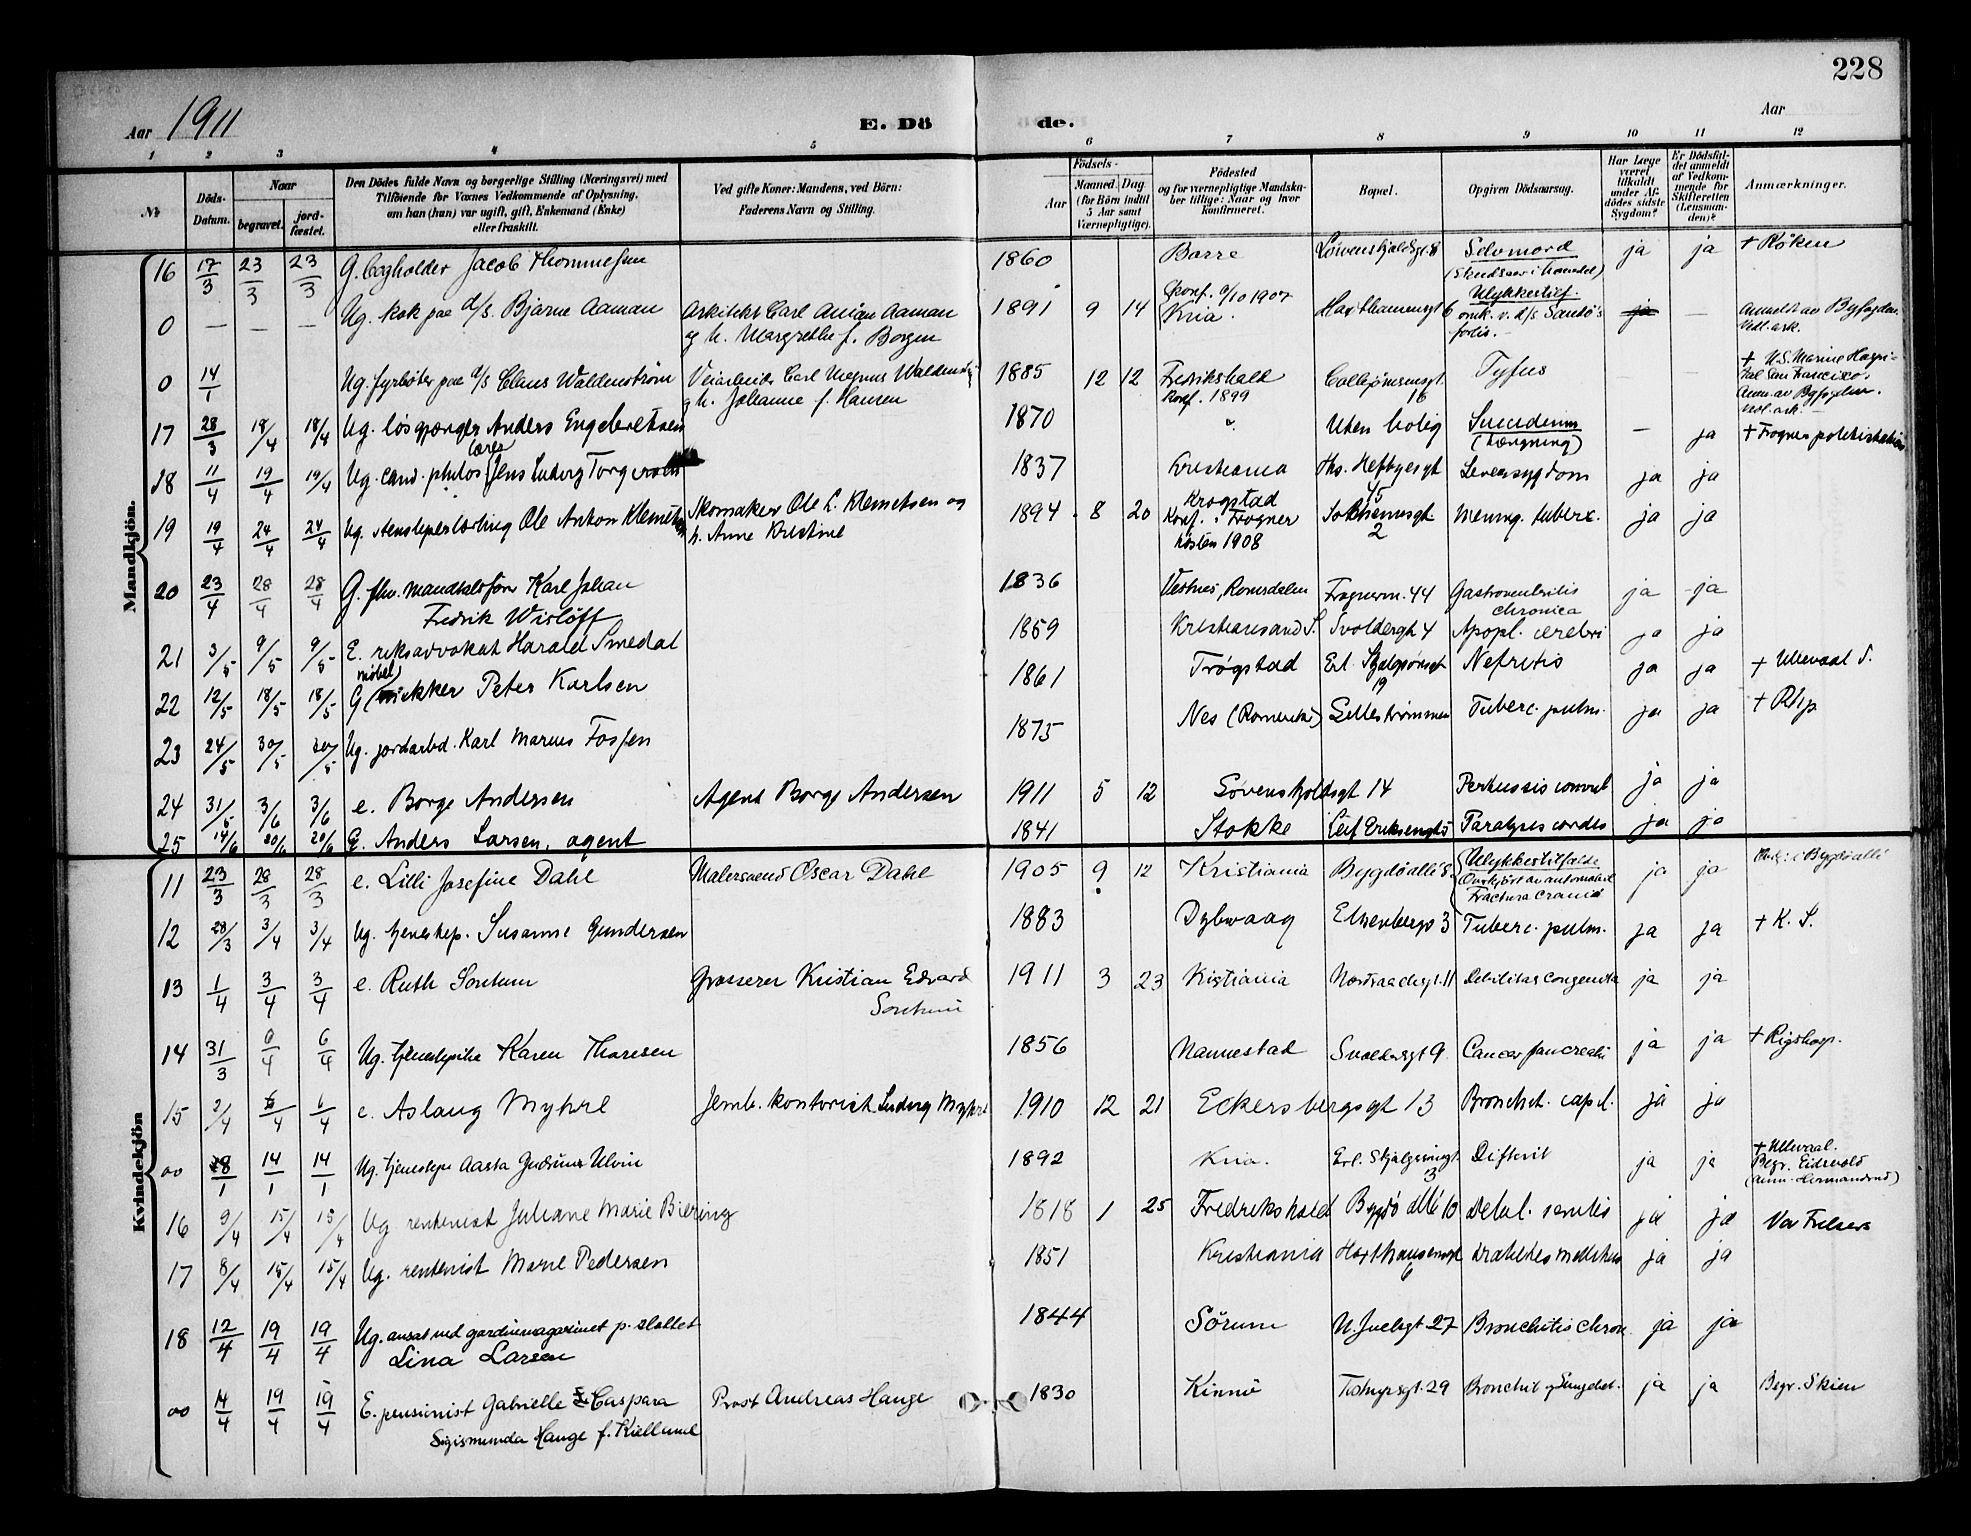 228
Aar 1911 E. Dö de. Aar
1 2 3 4 5 6 7 8 9 10 11 12
№ Döds-Datum. Naar begravet. jord-fæstet. Den Dödes fulde Navn og borgerlige Stilling (Næringsvei) med Tilföiende for Voxnes Vedkommende af Oplysning, om han (hun) var ugift, gift, Enkemand (Enke) eller fraskilt. Ved gifte Koner: Mandens, ved Börn: Faderens Navn og Stilling. Födsels- Aar Maaned. Dag. (for Börn indtil 5 Aar samt Værnepligtige). Födested og for værnepligtige Mandskaber tillige: Naar og hvor konfirmeret. Bopæl. Opgiven Dödsaarsag. Har Læge været tilkaldt under Afdödes sidste Sygdom? Er Dödsfaldet anmeldt af Vedkommende for Skifteretten (Lensmanden)? Anmærkninger.
Mandkjön.
16 17/3 23/3 23/3 G. bogholder Jacob Thommesen 1860 Borre Løvenskjoldsgt. 8 Selvmord ja ja + Røken
(Skudsaar i hovedet)
0 — — — Ug. kok paa d/s. Bjarne Aaman Arkitekt Carl Anian Aaman 1891 9 14 Konf. 9/10 1907 Haxthausensgt 6 Ulykkestilf. ja — Anmeldt av Byfogden.
og h. Margrethe f. Borgen Kria. omk. v. d/s Sandø's forlis. Vedl. ark.
0 14/1 Ug. fyrbøter paa d/s Claus Waldenstrøm Veiarbeider Carl Magnus Waldenstr. 1885 12 12 Fredrikshald Colbjørnsensgt. 16 Tyfus — — + U.S. Marine Hospital San Francisco.
g h. Johanne f. Hansen Konf. 1899 Anm. av Byfogden. Vedl. ark.
17 28/3 18/4 18/4 Ug. løsgjænger Anders Engebretsen 1870 " Uten bolig Suicidium — ja + Frogner politistation
(hængning)
18 11/4 19/4 19/4 Ug. cand. philos Jens Ludvig Torgersen 1837 Kristiania Ths. Heftyesgt 45 Leversygdom ja ja
19 19/4 24/4 24/4 Ug. stensliperlærling Ole Anton Klemetsen Skomaker Ole L. Klemetsen og 1894 8 20 Krogstad 2 Mening. tuberc. ja ja
h. Anne Kristine Konf. i Frogner høsten 1908
20 23/4 28/4 28/4 G. fhv. Karl Johan 1836 Vestnes, Romsdalen Frognerv. 44 Gastroenteritis ja ja
Fredrik Wisløff chronica
21 3/5 9/5 9/5 E. riksadvokat Harald Smedal 1859 Kristiansand S. Svoldergt 4 Apopl. cerebri ja ja
22 12/5 18/5 18/5 G møbelsnekker Peter Karlsen 1861 Trøgstad Erl. Skjalgsønsgt 19 Nefritis ja ja + Ullevaal S.
23 24/5 30/5 30/5 Ug. jordarbd. Karl Marius Fossen 1875 Nes (Romerike) Lillestrømmen Tuberc. pulm. ja ja + Rhp
24 31/5 3/6 3/6 e. Borge Andersen Agent Borge Andersen 1911 5 12 Løvenskjoldsgt 14 Pertussis convul ja ja
25 14/6 20/6 20/6 G. Anders Larsen, agent 1841 Stokke Leif Eriksensgt 5 Paralysis cordis ja ja
Kvindekjön
11 23/3 28/3 28/3 e. Lilli Josefine Dahl Malersvend Oscar Dahl 1905 9 12 Kristiania Bygdøallé 8 Ulykkestilfælde ja ja i Bygdøallé
Overkjørt av automobil
Fractura cranii
12 28/3 3/4 3/4 Ug. tjenestep. Susanne Gundersen 1883 Dybwaag Elisenbergv 3 Tuberc. pulm. ja ja + K. S.
13 1/4 3/4 3/4 e. Ruth Sontum Grosserer Kristian Edvard 1911 3 23 Kristiania Nordraachsgt. 11 Debilitas congenita ja ja
Sontum
14 31/3 6/4 6/4 Ug. tjenestepike Karen Thoresen 1856 Nannestad Svoldersgt 9. Cancer pancreatis ja ja + Rigshosp.
15 2/4 6/4 6/4 e. Aslaug Myhre Jernb. kontorist Ludvig Myhre 1910 12 21 Eckersbergsgt 13 Bronchit. capil. ja ja
00 8/1 14/1 14/1 Ug. tjenestepi Aasta Gudrun Ulvin 1892 Kria. Erl. Skjalgsønsgt. 3 Difterit ja ja + Ullevaal.
Begr. Eidsvold
16 9/4 15/4 15/4 Ug rentenist Juliane Marie Biering 1818 1 25 Fredrikshald Bygdø allé 10 Debil. senilis ja ja Vor Frelsers
17 8/4 15/4 15/4 Ug. rentenist Marie Pedersen 1851 Kristiania Haxthausensgt 6 Diabetes mellitus ja ja
18 12/4 19/4 19/4 Ug. ansat ved gardinemagasinet p. slottet 1844 Sørum N. Juelsgt 27 Bronchitis chron. ja ja
Lina Larsen
00 14/4 19/4 19/4 E. pensionist Gabrielle Caspara Prost Andreas Hauge 1830 Kinn Tidemandsgt. 29 Bronchit ja ja Begr. Skien
Sigismunda Hauge f. Kielland